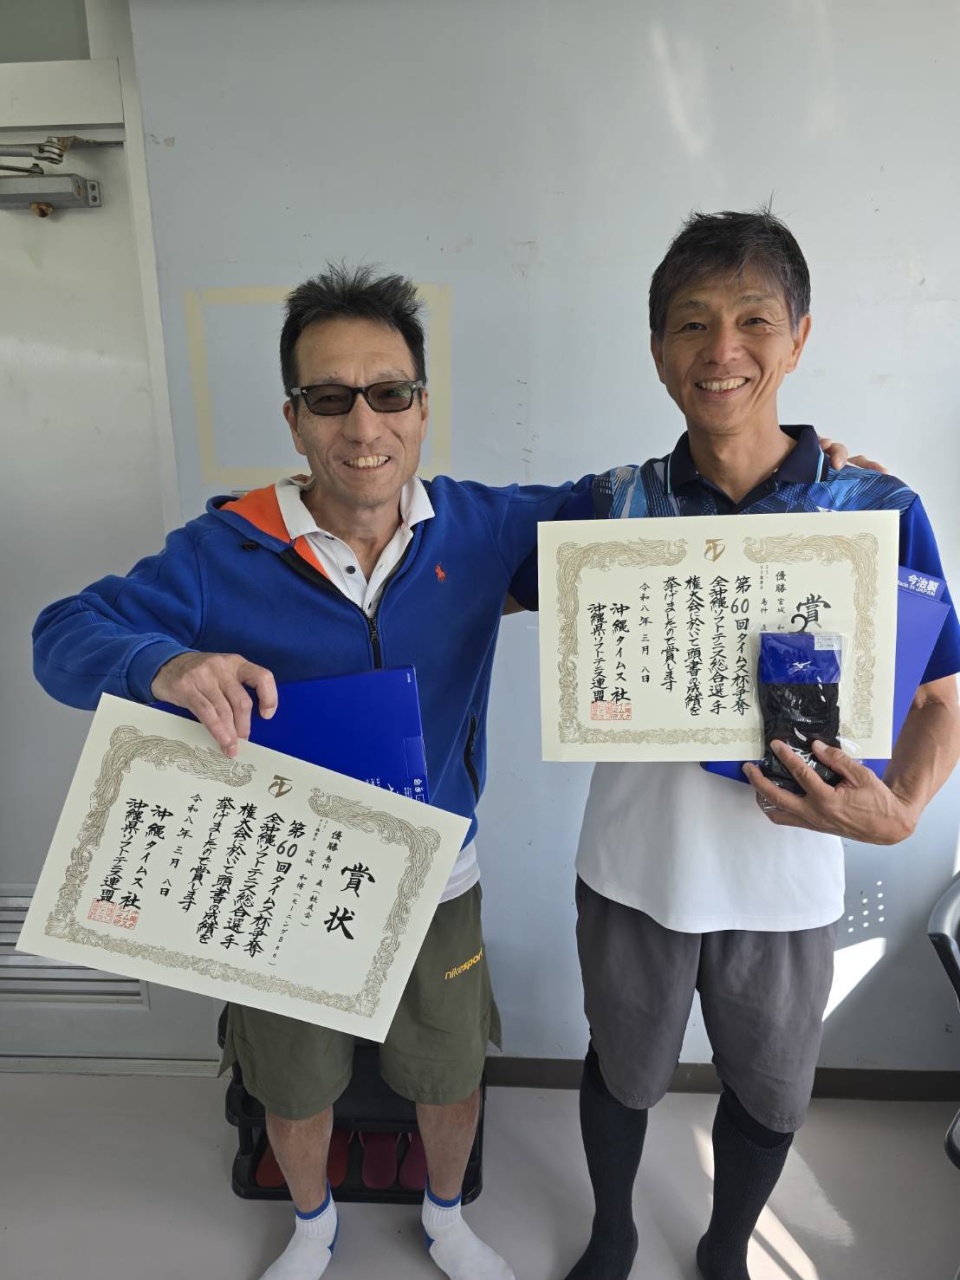 賞状
優勝
宮城 和博(モーニング500)
第60回タイムス杯争奪
全沖縄ソフトテニス総合選手
権大会に於いて頭書の成績を
挙げましたので賞します
令和八年三月八日
沖縄タイムス社
沖縄県ソフトテニス連盟
nikesport
賞
優勝 宮城
第60回タイムス杯争奪
全沖縄ソフトテニス総合選手
権大会に於いて頭書の成績を
挙げましたので賞します
令和八年三月八日
沖縄タイムス社
沖縄県ソフトテニス連盟
今治製
Made in JAPAN